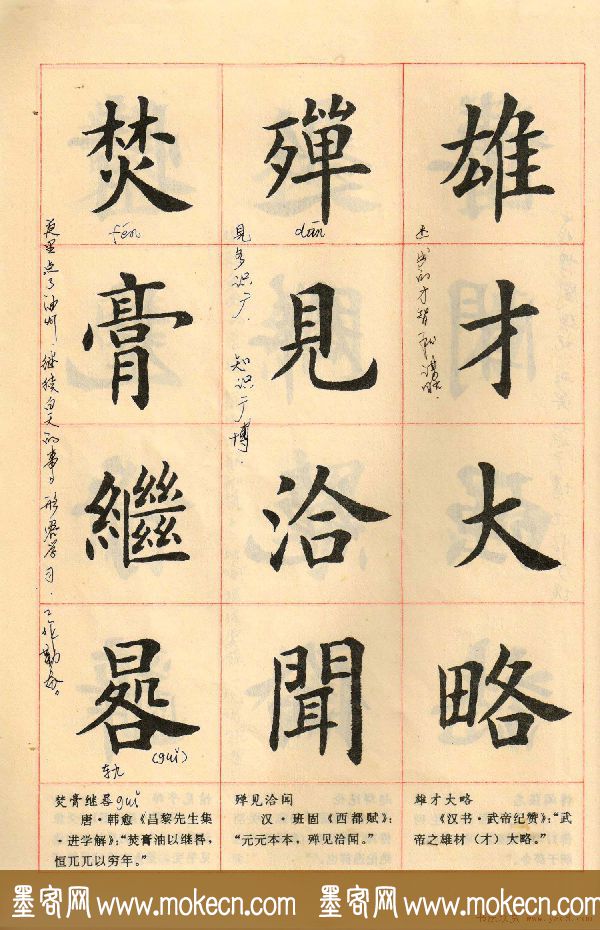 雄才大略
杰出的才智和谋略.
殚见洽闻
dān
见多识广. 知识广博.
焚膏继晷
fén
轨 (guǐ)
夜里点了油灯, 继续白天的事. 形容学习. 工作勤奋。
雄才大略
《汉书·武帝纪赞》：“武
帝之雄材（才）大略。”
殚见洽闻
汉·班固《西都赋》：
“元元本本，殚见洽闻。”
焚膏继晷 guǐ
唐·韩愈《昌黎先生集
·进学解》：“焚膏油以继晷，
恒兀兀以穷年。”
墨客网 www.mokecn.com 墨客网 www.mokecn.com